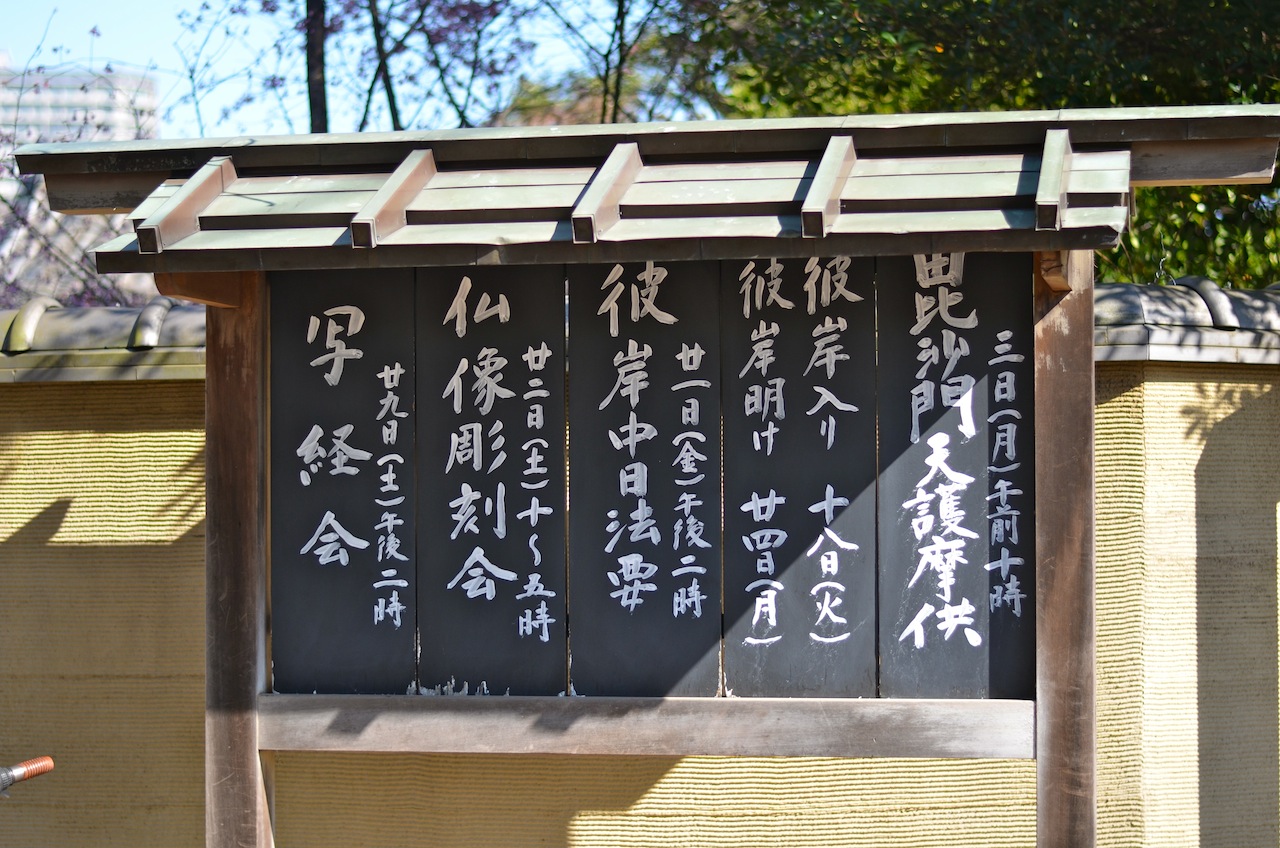 毘比沙門天護摩供
三日(月)午前十時
彼岸入り 十八日(火)
彼岸明け 廿四日(月)
彼岸中日法要
廿一日(金)午後二時
仏像彫刻会
廿二日(土)十〜五時
写経会
廿九日(土)午後二時